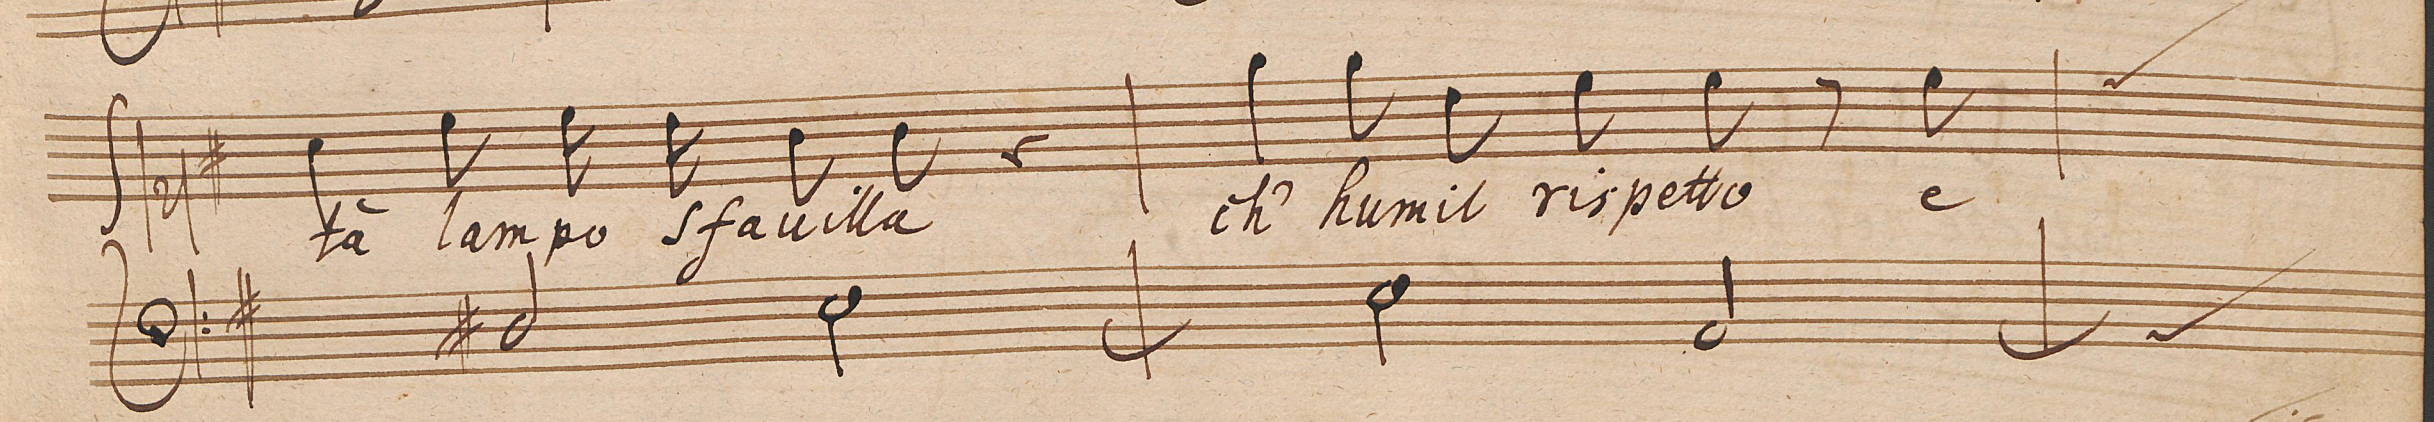 tà lampo sfauilla ch' humil rispetto e